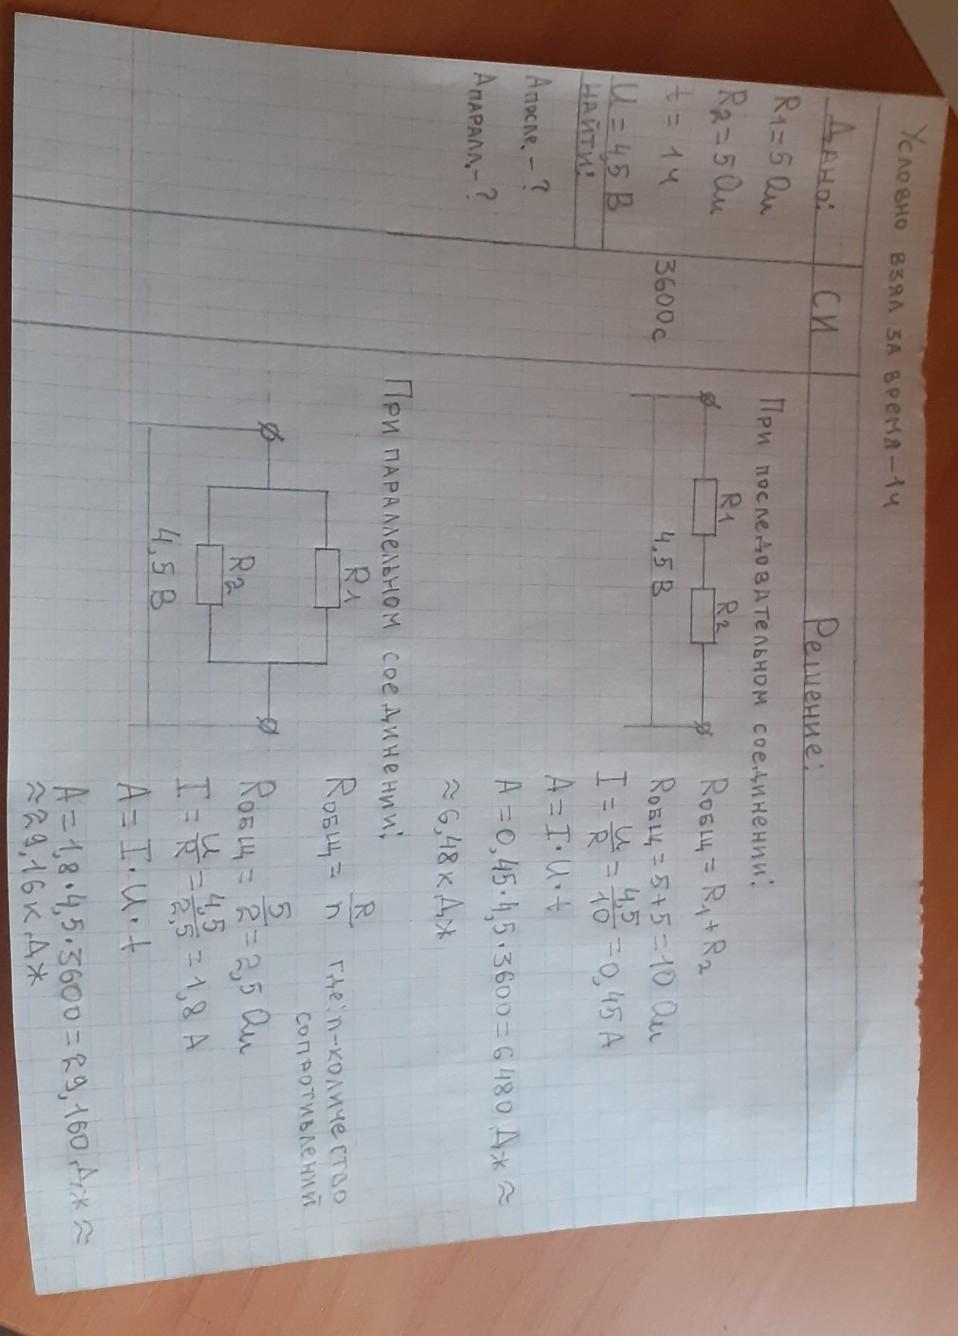 Условно взял за время-1ч
Дано:
R1=5 Ом
R2=5 Ом
t= 1ч
U=4,5 В
Найти:
Aпосле.-?
Aпаралл.-?
СИ
3600с
Решение:
При последовательном соединении:
R1
R2
4,5 В
Rобщ=R1+R2
Rобщ=5+5=10 Ом
I=U/R=4,5/10=0,45 А
A=I·U·t
A=0,45·4,5·3600=6480 Дж≈
≈6,48кДж
При параллельном соединении:
R1
R2
4,5 В
Rобщ=R/n где:n-количество
сопротивлений
Rобщ=5/2=2,5 Ом
I=U/R=4,5/2,5=1,8 А
A=I·U·t
A=1,8·4,5·3600=29,160Дж≈
≈29,16кДж